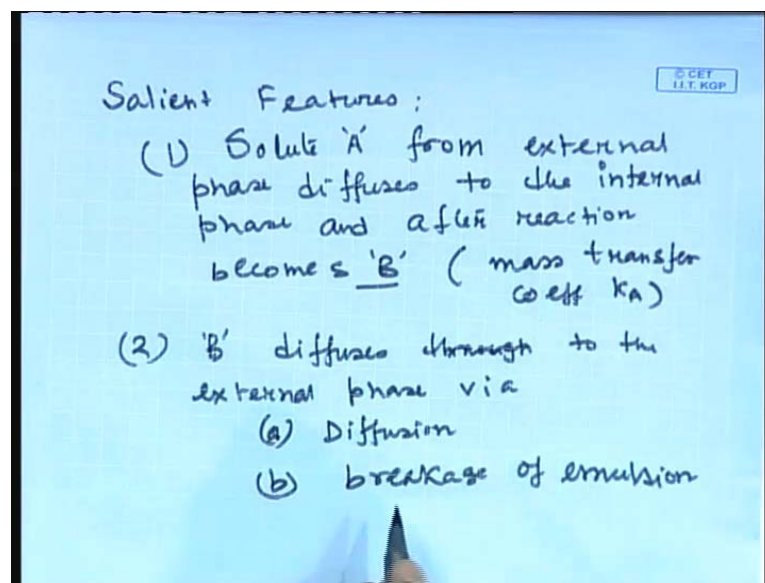 © CET
I.I.T. KGP
Salient Features:
(1) Solute 'A' from external
phase diffuses to the internal
phase and after reaction
becomes 'B' ( mass transfer
coeff KA)
(2) 'B' diffuses through to the
external phase via
(a) Diffusion
(b) breakage of emulsion